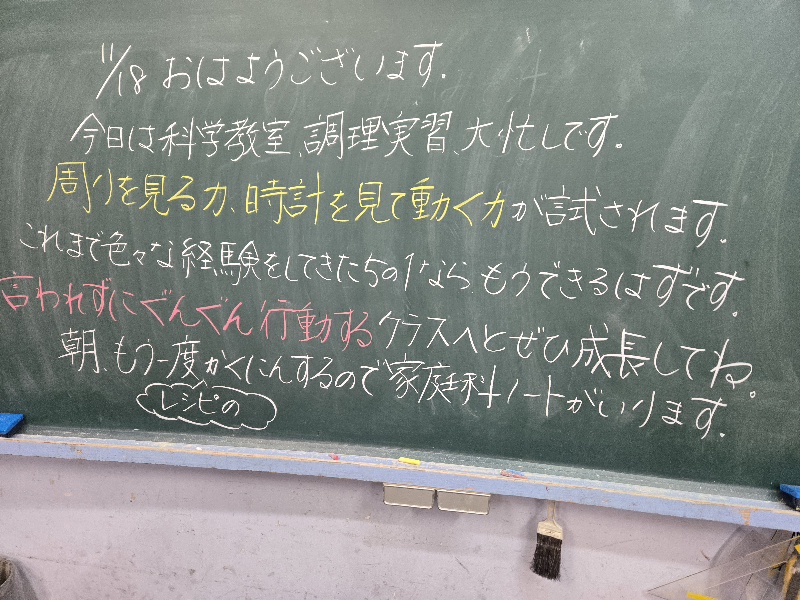 11/18 おはようございます。
今日は科学教室、調理実習、大忙しです。
周りを見る力、時計を見て動く力が試されます。
これまで色々な経験をしてきた5の1なら、もうできるはずです。
言われずにぐんぐん行動するクラスへとぜひ成長してね。
朝、もう一度かくにんするので家庭科ノートがいります。
レシピの